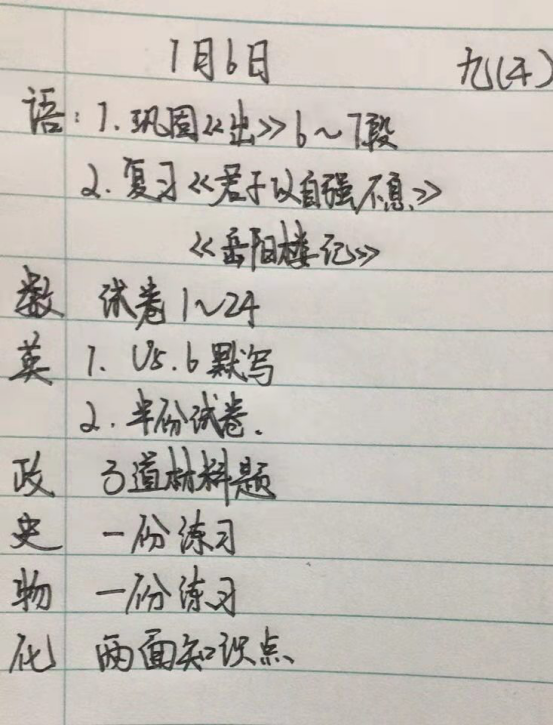 1月6日 九(平)
语: 1. 巩固《出》6～7段
2. 复习《君子以自强不息》
《岳阳楼记》
数 试卷1～24
英 1. U5.6默写
2. 半份试卷.
政 3道材料题
史 一份练习
物 一份练习
化 两面知识点